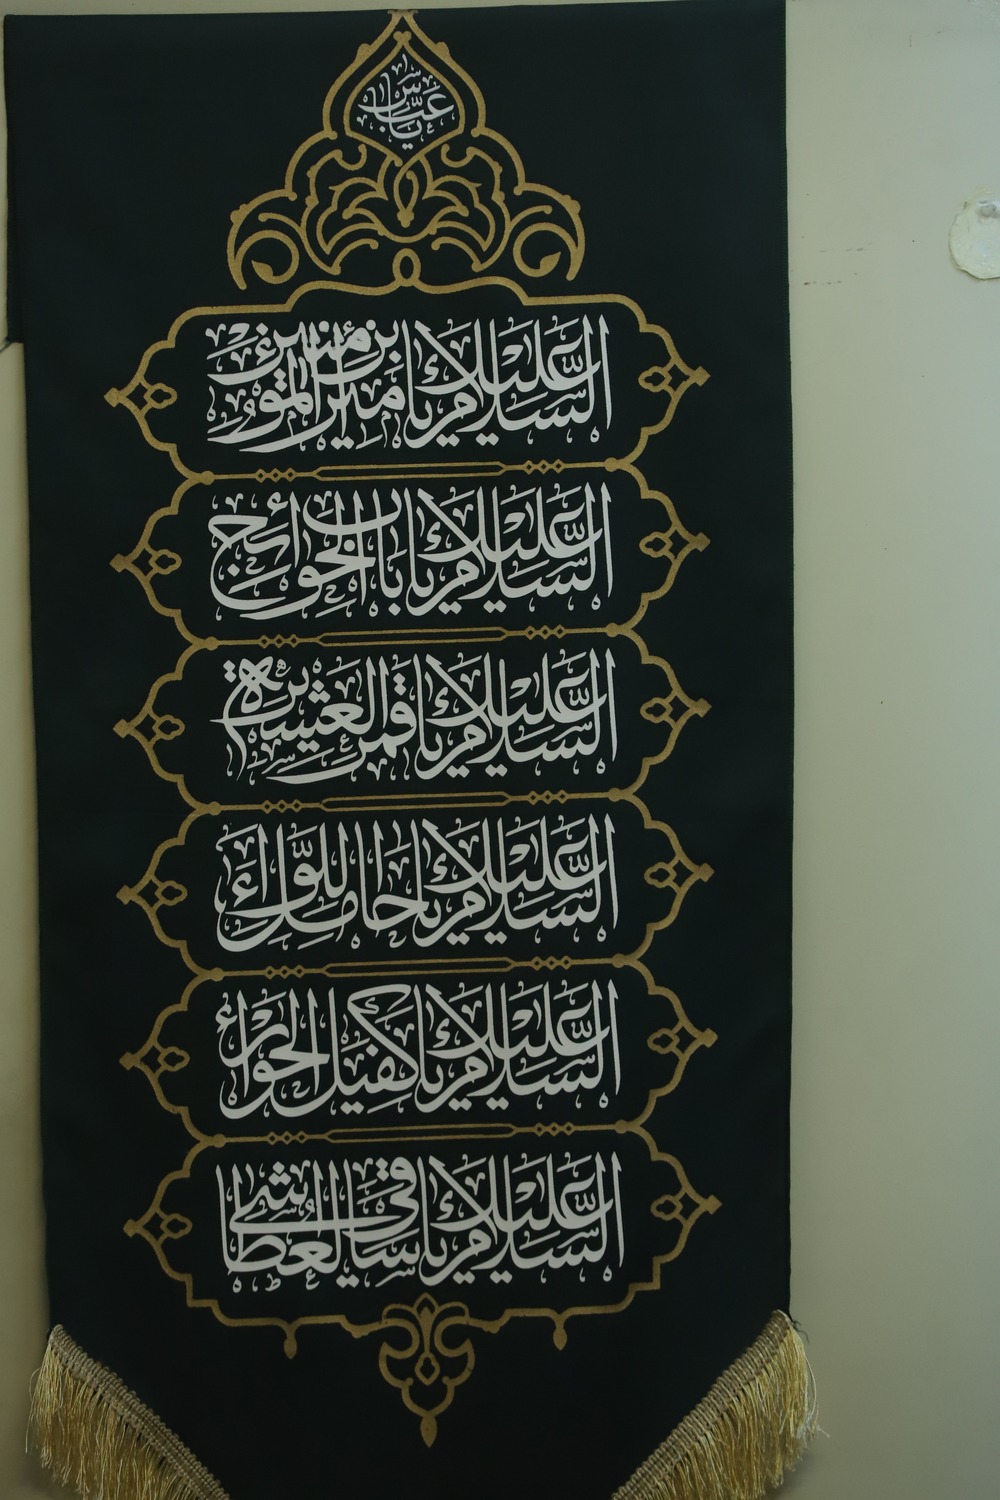 يا عباس
السلام عليك يا بن امير المؤمنين
السلام عليك يا باب الحوائج
السلام عليك يا قمر العشيرة
السلام عليك يا حامل اللواء
السلام عليك يا كفيل الحوراء
السلام عليك يا ساقي العطاشى